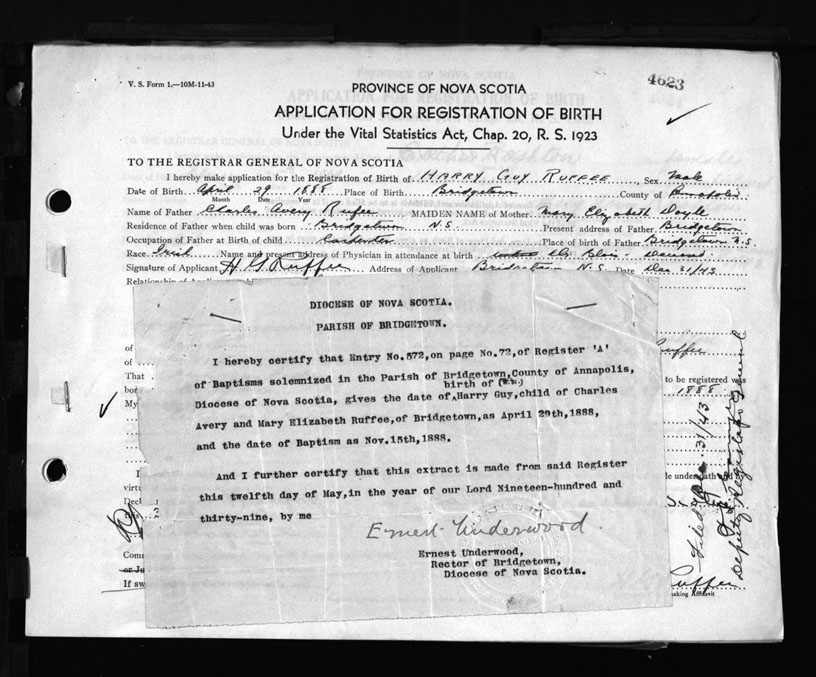 V. S. Form 1.—10M-11-43
4623
PROVINCE OF NOVA SCOTIA
APPLICATION FOR REGISTRATION OF BIRTH
Under the Vital Statistics Act, Chap. 20, R. S. 1923
TO THE REGISTRAR GENERAL OF NOVA SCOTIA
I hereby make application for the Registration of Birth of HARRY GUY RUFFEE Sex Male
Date of Birth April 29 1888 Place of Birth Bridgetown County of Annapolis
Month Date Year
Name of Father Charles Avery Ruffee MAIDEN NAME of Mother Mary Elizabeth Doyle
Residence of Father when child was born Bridgetown N.S. Present address of Father Bridgetown
Occupation of Father at Birth of child Carpenter Place of birth of Father Bridgetown N.S.
Race Irish Name and present address of Physician in attendance at birth Dr. Deceased
Signature of Applicant H G Ruffee Address of Applicant Bridgetown N.S. Date Dec 31/43
DIOCESE OF NOVA SCOTIA.
PARISH OF BRIDGETOWN.
I hereby certify that Entry No.572,on page No.72,of Register 'A'
of Baptisms solemnized in the Parish of Bridgetown,County of Annapolis,
birth of
Diocese of Nova Scotia, gives the date of,Harry Guy,child of Charles
Avery and Mary Elizabeth Ruffee,of Bridgetown,as April 29th,1888,
and the date of Baptism as Nov.15th,1888.
And I further certify that this extract is made from said Register
this twelfth day of May,in the year of our Lord Nineteen-hundred and
thirty-nine, by me
Ernest Underwood.
Ernest Underwood,
Rector of Bridgetown,
Diocese of Nova Scotia.
of
of
That
born
My
Ruffee
to be registered was
1888
I
virtu
Decl
Comm
or Ju
If sw
made under oath and
Filed Dec. 31/43
Deputy Registrar General
Ruffee
making Affidavit